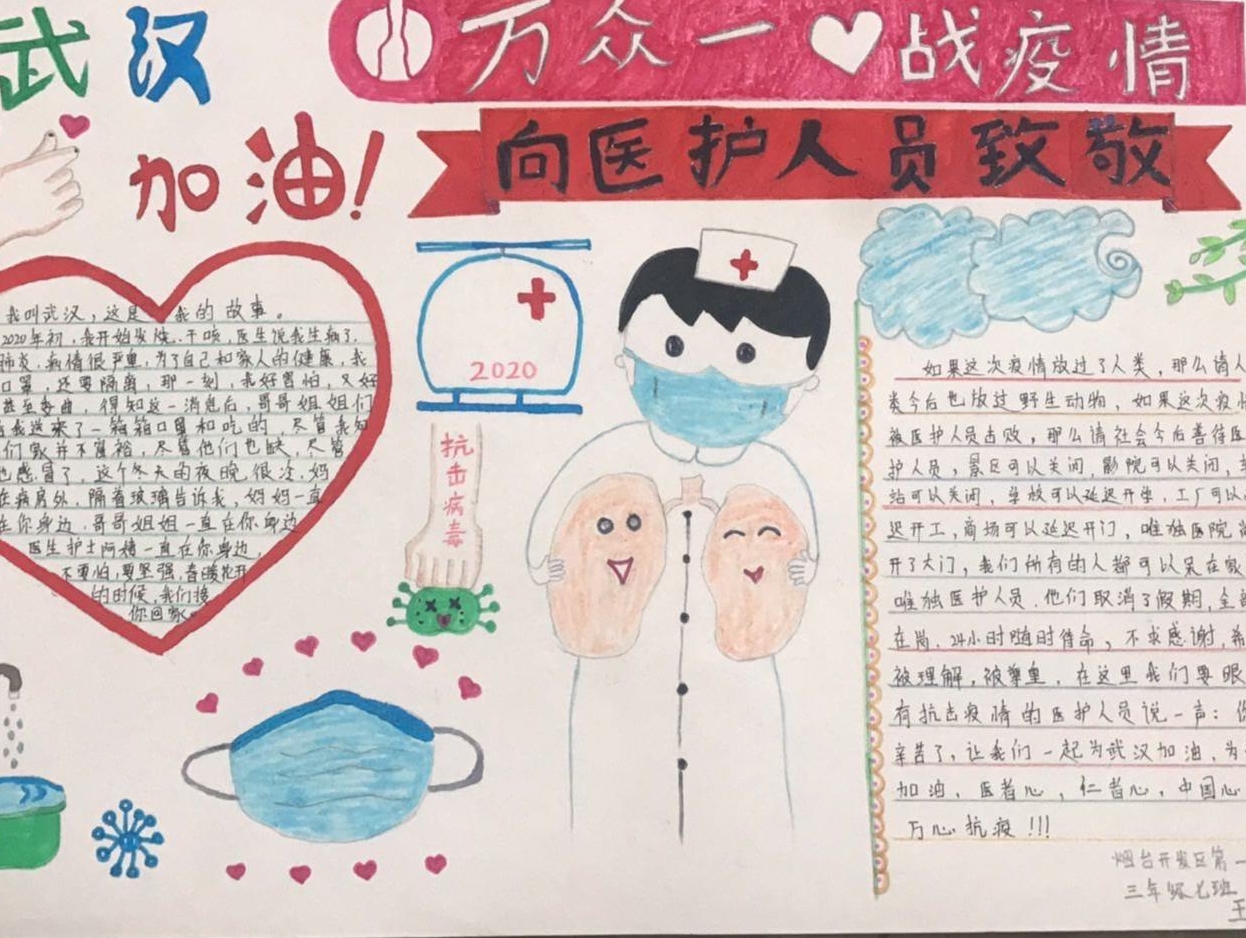 武汉
加油!
万众一
战疫情
向医护人员致敬
我叫武汉,这是我的故事。
2020年初,我开始发烧、干咳,医生说我生病了,
肺炎,病情很严重,为了自己和家人的健康,我
口罩,还要隔离,那一刻,我好害怕,又好
得知这一消息后,哥哥姐姐们
我送来了一箱箱口罩和吃的,尽管我知
们家并不富裕,尽管他们也缺,尽管
也感冒了,这个冬天的夜晚很冷,妈
在病房外,隔着玻璃告诉我,妈妈一直
在你身边,哥哥姐姐一直在你身边
医生护士阿姨一直在你身边,
不要怕,要坚强,春暖花开
的时候,我们接
你回家
2020
抗击病毒
如果这次疫情放过了人类,那么请人
类今后也放过野生动物,如果这次疫情
被医护人员击败,那么请社会今后善待医
护人员,景区可以关闭,影院可以关闭,车
站可以关闭,学校可以延迟开学,工厂可以
迟开工,商场可以延迟开门,唯独医院
开了大门,我们所有的人都可以呆在家
唯独医护人员,他们取消了假期,全部
在岗,24小时随时待命,不求感谢,希
被理解,被尊重,在这里我们要
有抗击疫情的医护人员说一声:你
辛苦了,让我们一起为武汉加油,为
加油,医者心,仁者心,中国心
万心抗疫!!!
烟台开发区第一
三年级七班
王